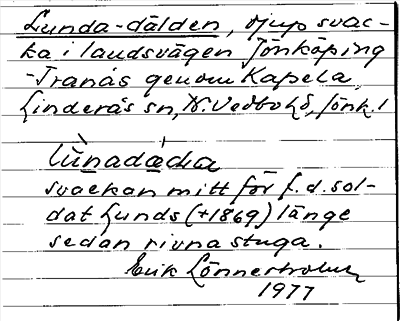 Lunda-dälden, djup svac-
ka i landsvägen Jönköping
-Tranås genom Kapela,
Linderås sn, N. Vedbo hd, Jönk. l
lùnadàka
svackan mitt för f. d. sol-
dat Lunds (+1869) länge
sedan rivna stuga.
Erik Lönnerholm
1977